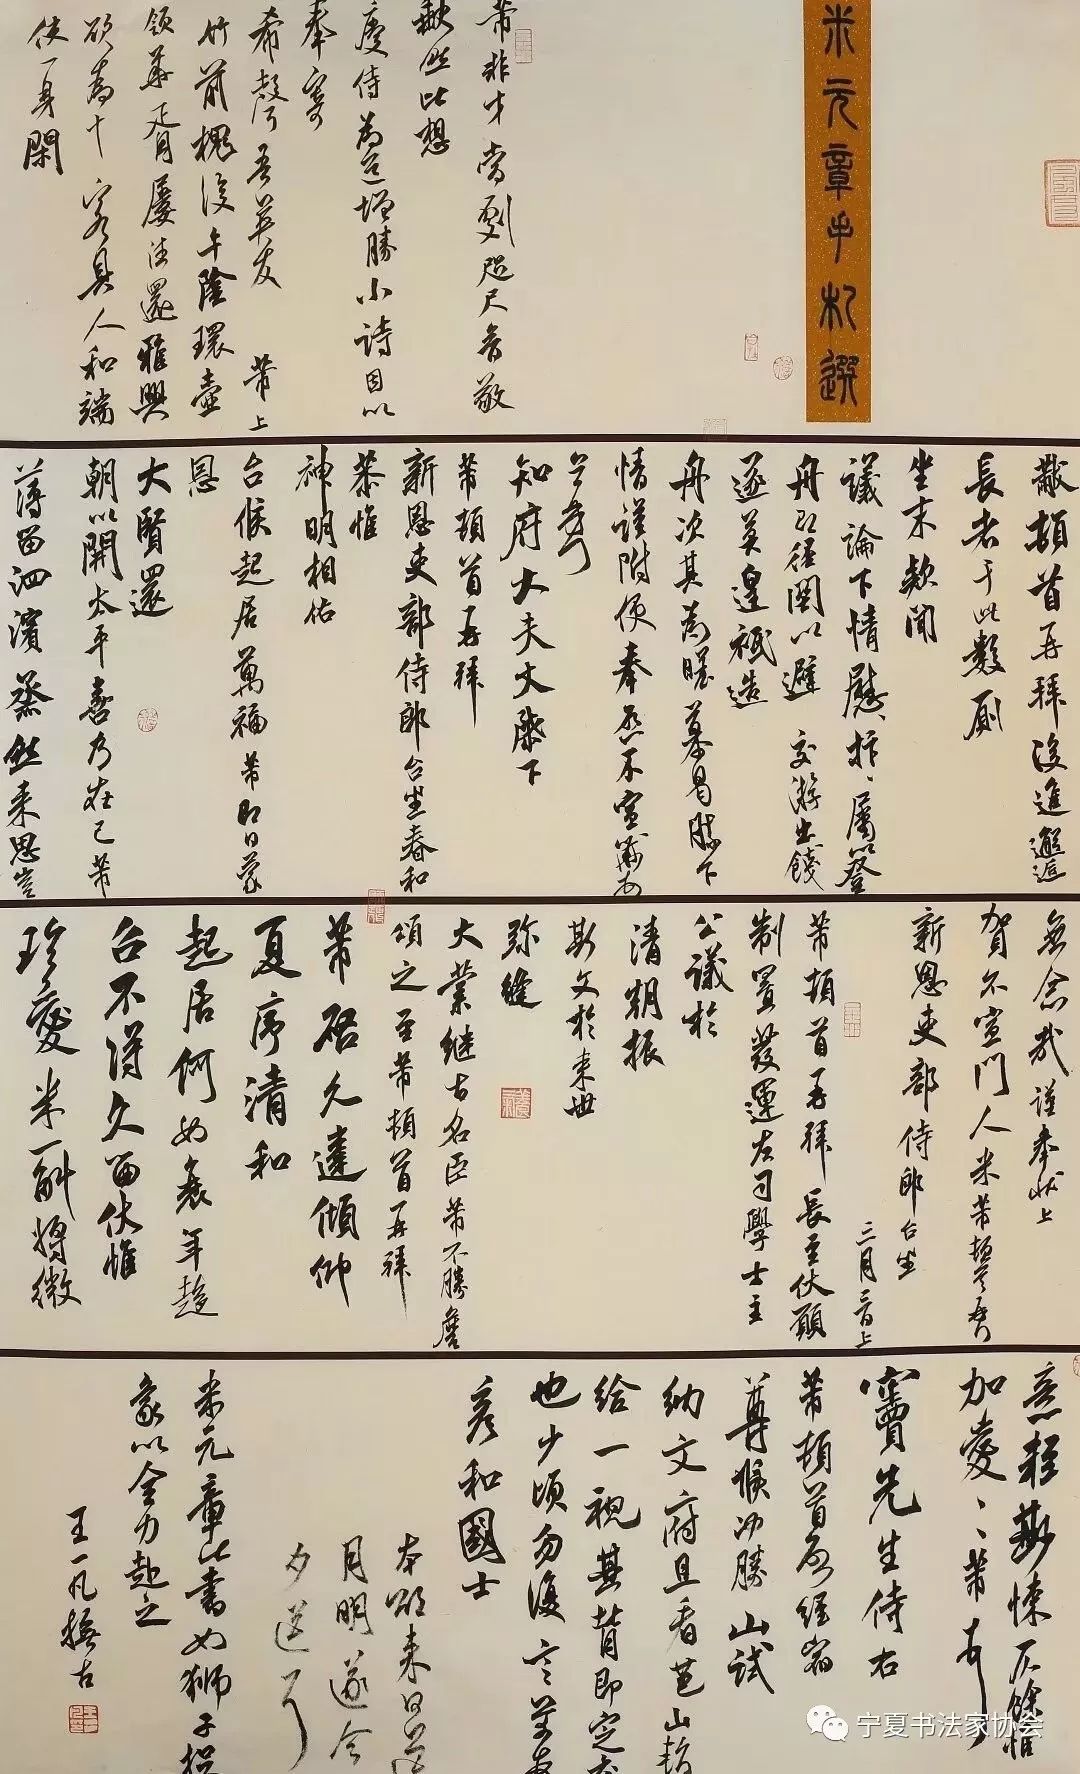 米元章手札選
芾非才當劇咫尺音敬
歉然比想
慶侍為道增勝小詩因以
奉寄
希聲吾英友 芾上
竹前槐後午陰環壺
領華胥屢法還雅興
欲為十客具人和端
使一身閑
黻頓首再拜後進邂逅
長者于此數厠
坐末款聞
議論下情慰抃慰抃屬以登
舟即徑閉以避交游出餞
遂莫遑祇造
舟次其為瞻慕曷勝下
情謹附便奉啓不宣黻頓首
知府大夫丈棨下
芾頓首再拜
新恩吏部侍郎台坐春和
恭惟
神明相佑
台候起居萬福芾即日蒙
恩
大賢還
朝以開太平喜乃在己芾
薄留泗濱烝然來思豈
無念哉謹奉狀上
賀不宣門人米芾頓首再拜
新恩吏部侍郎台坐
三月 日上
芾頓首再拜長至伏願
制置發運左司學士主
公議於
清朝振
斯文於來世
弥縫
大業继古名臣芾不勝詹
頌之至芾頓首再拜
芾啓久違傾仰
夏序清和
起居何如衰年趍
召不得久留伏惟
珍愛米一斛將微
意輕鮮悚仄餘惟
加愛加愛芾頓首
竇先生侍右
芾頓首啓經宿
尊候冲勝山試
納文府且看芭山輅
给一視其背即定交
也少頃勿復言芾頓首
彦和國士
本欲來日送
月明遂今
夕送耳
米元章此書如獅子捉
象以全力赴之
王一凡撫古
宁夏书法家协会